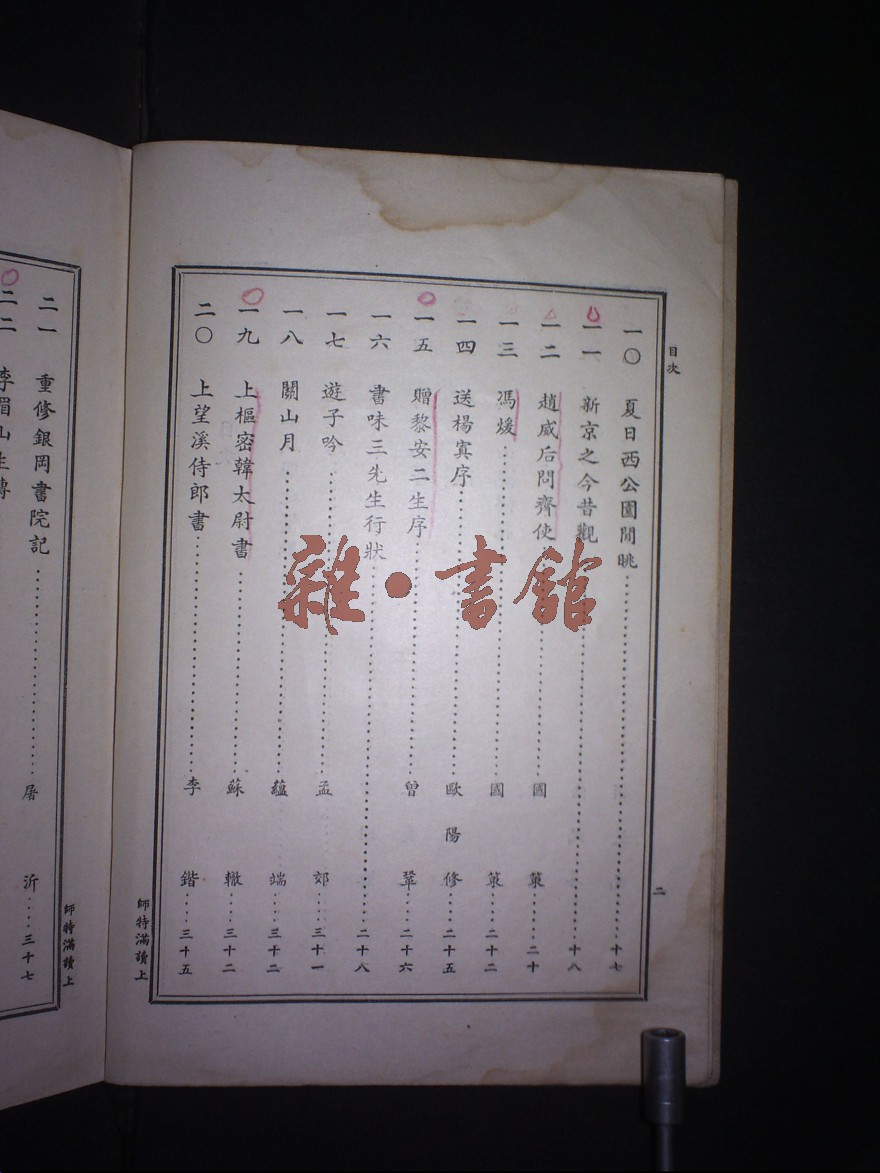 目次
一〇 夏日西公園閒眺…………十七
一一 新京之今昔觀…………十八
一二 趙威后問齊使…………國策……二十
一三 馮煖…………國策……二十二
一四 送楊寘序…………歐陽修……二十五
一五 贈黎安二生序…………曾鞏……二十六
一六 書味三先生行狀…………二十八
一七 遊子吟…………孟郊……三十一
一八 關山月…………蘊端……三十二
一九 上樞密韓太尉書…………蘇轍……三十二
二〇 上望溪侍郎書…………李鍇……三十五
二
師特滿讀上
二一 重修銀岡書院記…………屠沂……三十七
二二 李眉山生傳
師特滿讀上
雜·書館